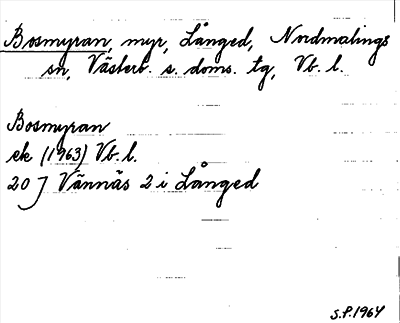 Bosmyran, myr, Långed, Nordmalings
sn, Västerb. s. doms. tg, Vb. l.
Bosmyran
ek (1963) Vb. l.
20 J Vännäs 2 i Långed
S.P. 1964